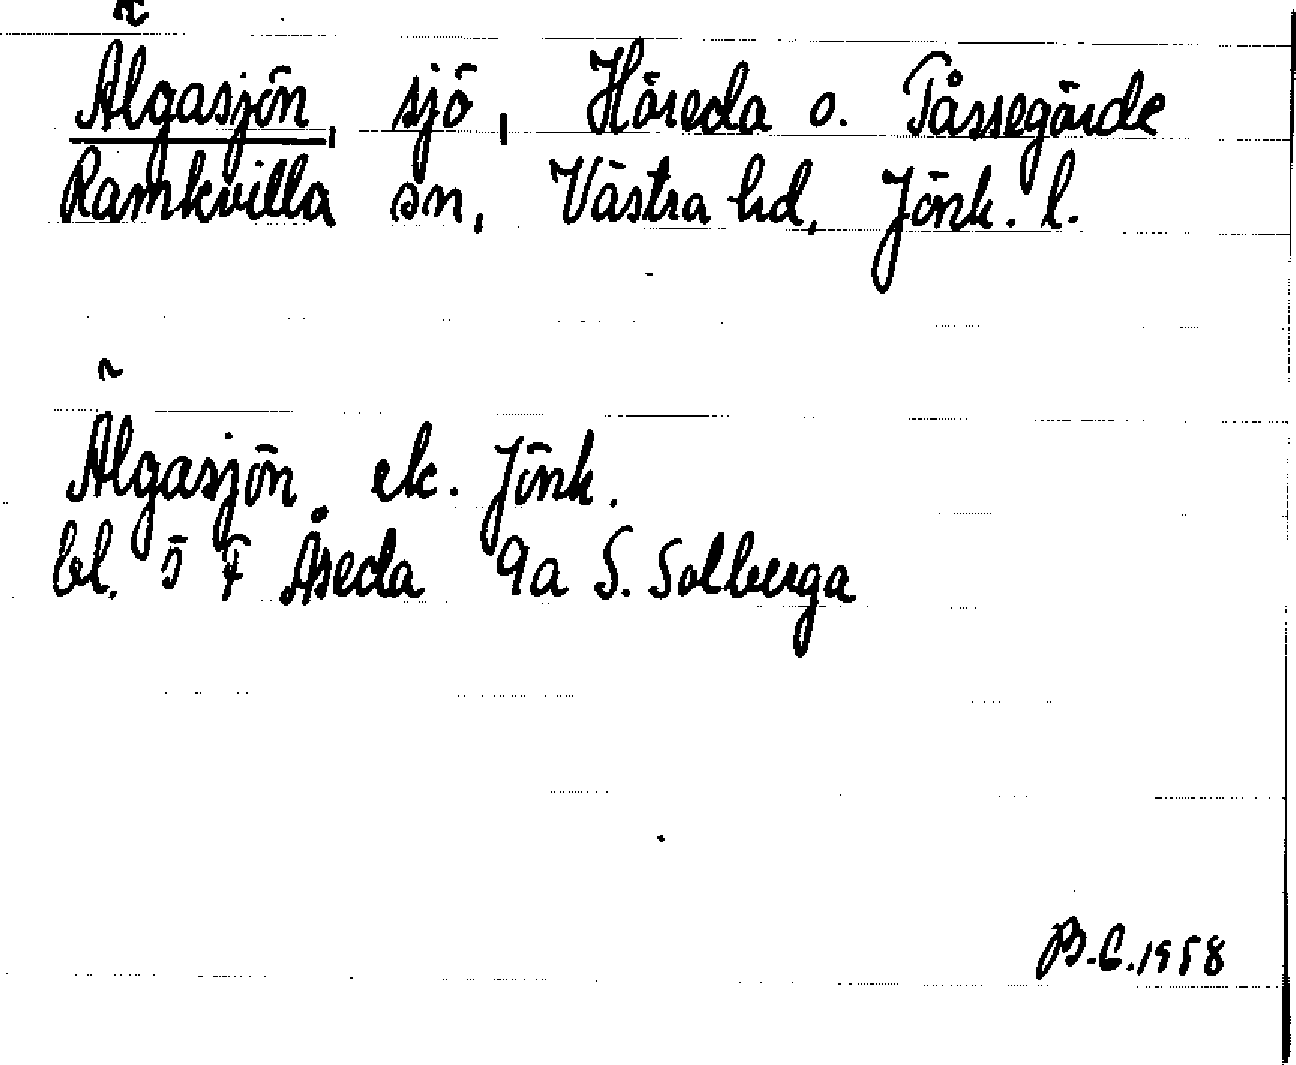 Älgasjön, sjö, Häreda o. Påssegärde
Ramkvilla sn, Västra hd, Jönk. l.
Älgasjön. ek. Jönk.
bl. 5 F Åseda 9a S. Solberga
B.C. 1958